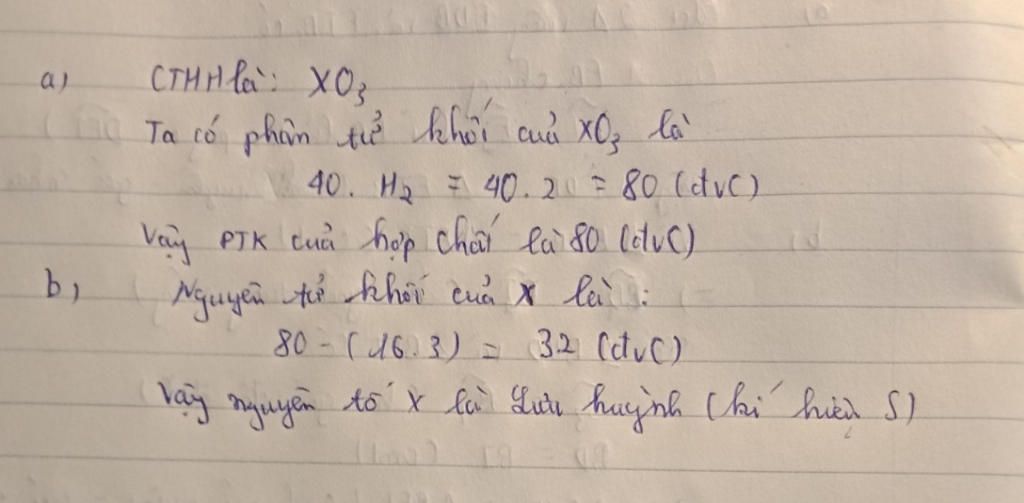 a) CTHH là: XO3
Ta có phân tử khối của XO3 là
40. H2 = 40. 2 = 80 (đvC)
Vậy PTK của hợp chất là 80 (đvC)
b) Nguyên tử khối của X là:
80 - (16.3) = 32 (đvC)
Vậy nguyên tố X là Lưu huỳnh (kí hiệu S)